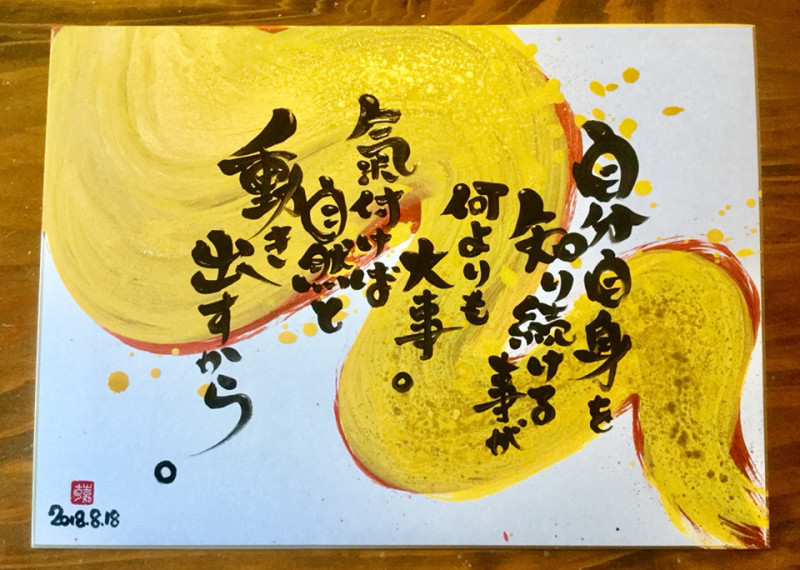 自分自身を
知り続ける
事が
何よりも
大事。
氣付けば
自然と
動き
出すから。
2018.8.18